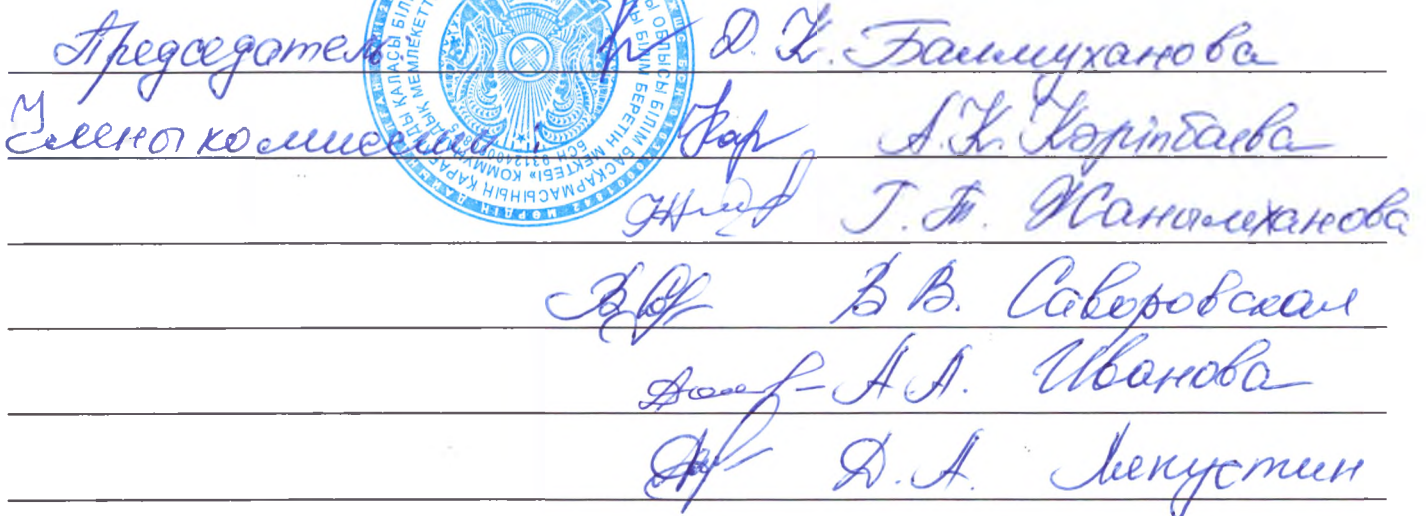 Председатель Д. К. Балмуханова
Члены комиссии: А.К. Кәріпбаева
Г. Т. Жанылханова
В В. Саворовская
А А. Иванова
Д. А. Лекустин